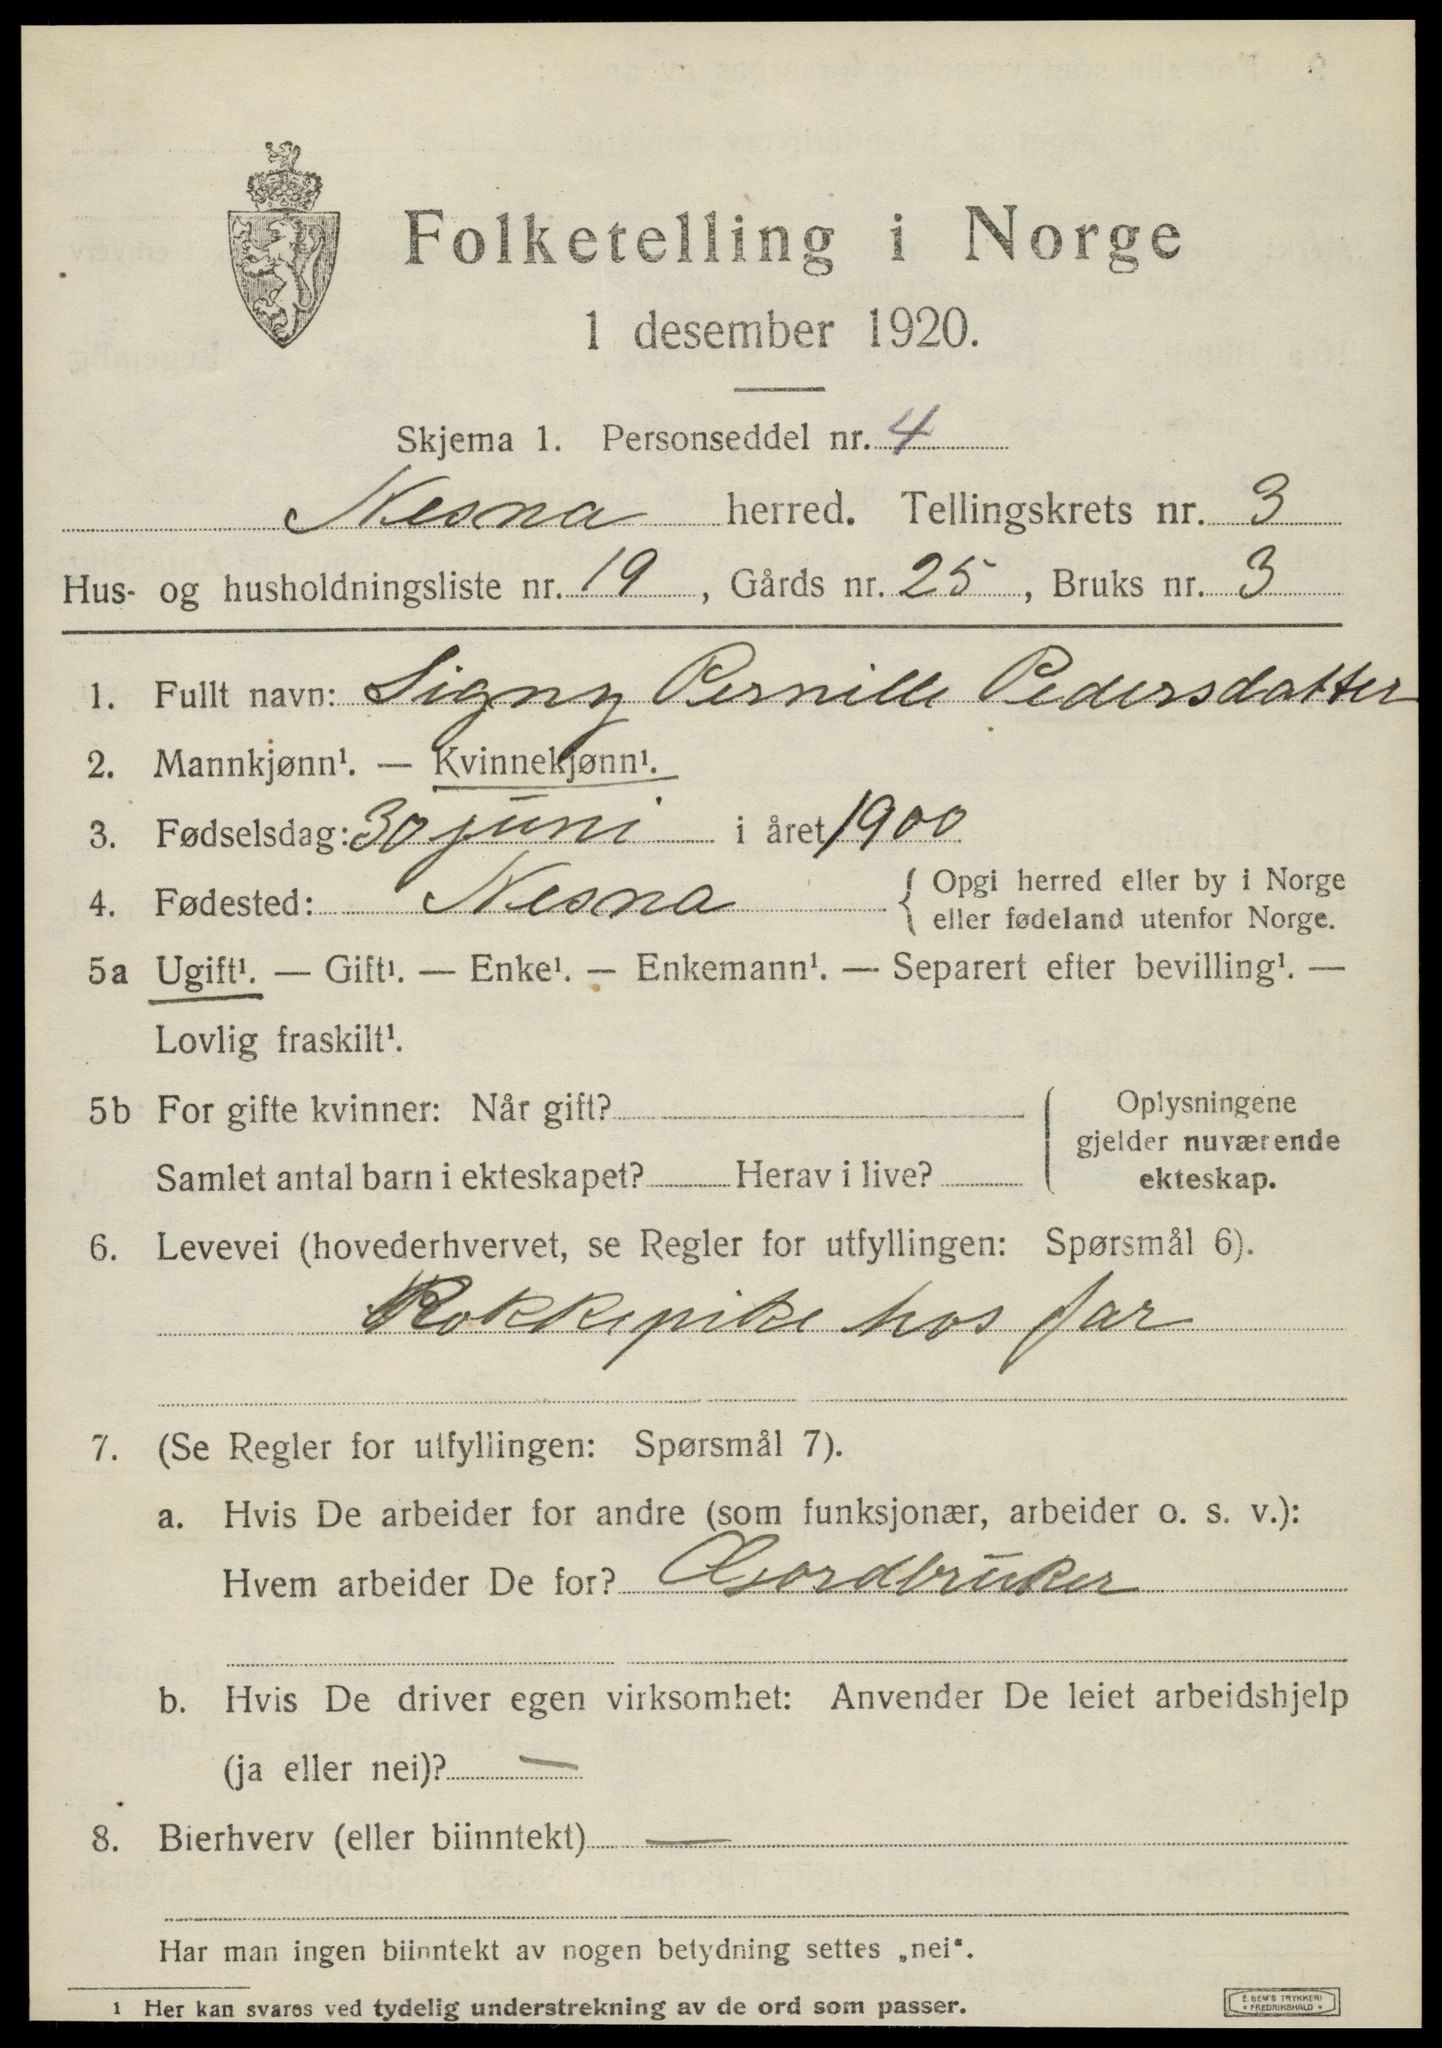 Folketelling i Norge
1 desember 1920.
Skjema 1. Personseddel nr. 4
Nesna herred. Tellingskrets nr. 3
Hus- og husholdningsliste nr. 19, Gårds nr. 25, Bruks nr. 3
1. Fullt navn: Signy Pernille Pedersdatter
2. Mannkjønn¹. — Kvinnekjønn¹.
3. Fødselsdag: 30 juni i året 1900
4. Fødested: Nesna { Opgi herred eller by i Norge
eller fødeland utenfor Norge.
5a Ugift¹. — Gift¹. — Enke¹. — Enkemann¹. — Separert efter bevilling¹. —
Lovlig fraskilt¹.
5b For gifte kvinner: Når gift?
Samlet antal barn i ekteskapet? Herav i live?
Oplysningene
gjelder nuværende
ekteskap.
6. Levevei (hovederhvervet, se Regler for utfyllingen: Spørsmål 6).
Kokkepike hos far
7. (Se Regler for utfyllingen: Spørsmål 7).
a. Hvis De arbeider for andre (som funksjonær, arbeider o. s. v.):
Hvem arbeider De for? Gordbruker
b. Hvis De driver egen virksomhet: Anvender De leiet arbeidshjelp
(ja eller nei)? —
8. Bierhverv (eller biinntekt) —
Har man ingen biinntekt av nogen betydning settes „nei“.
1 Her kan svares ved tydelig understrekning av de ord som passer.
E. SEM'S TRYKKERI
FREDRIKSHALD